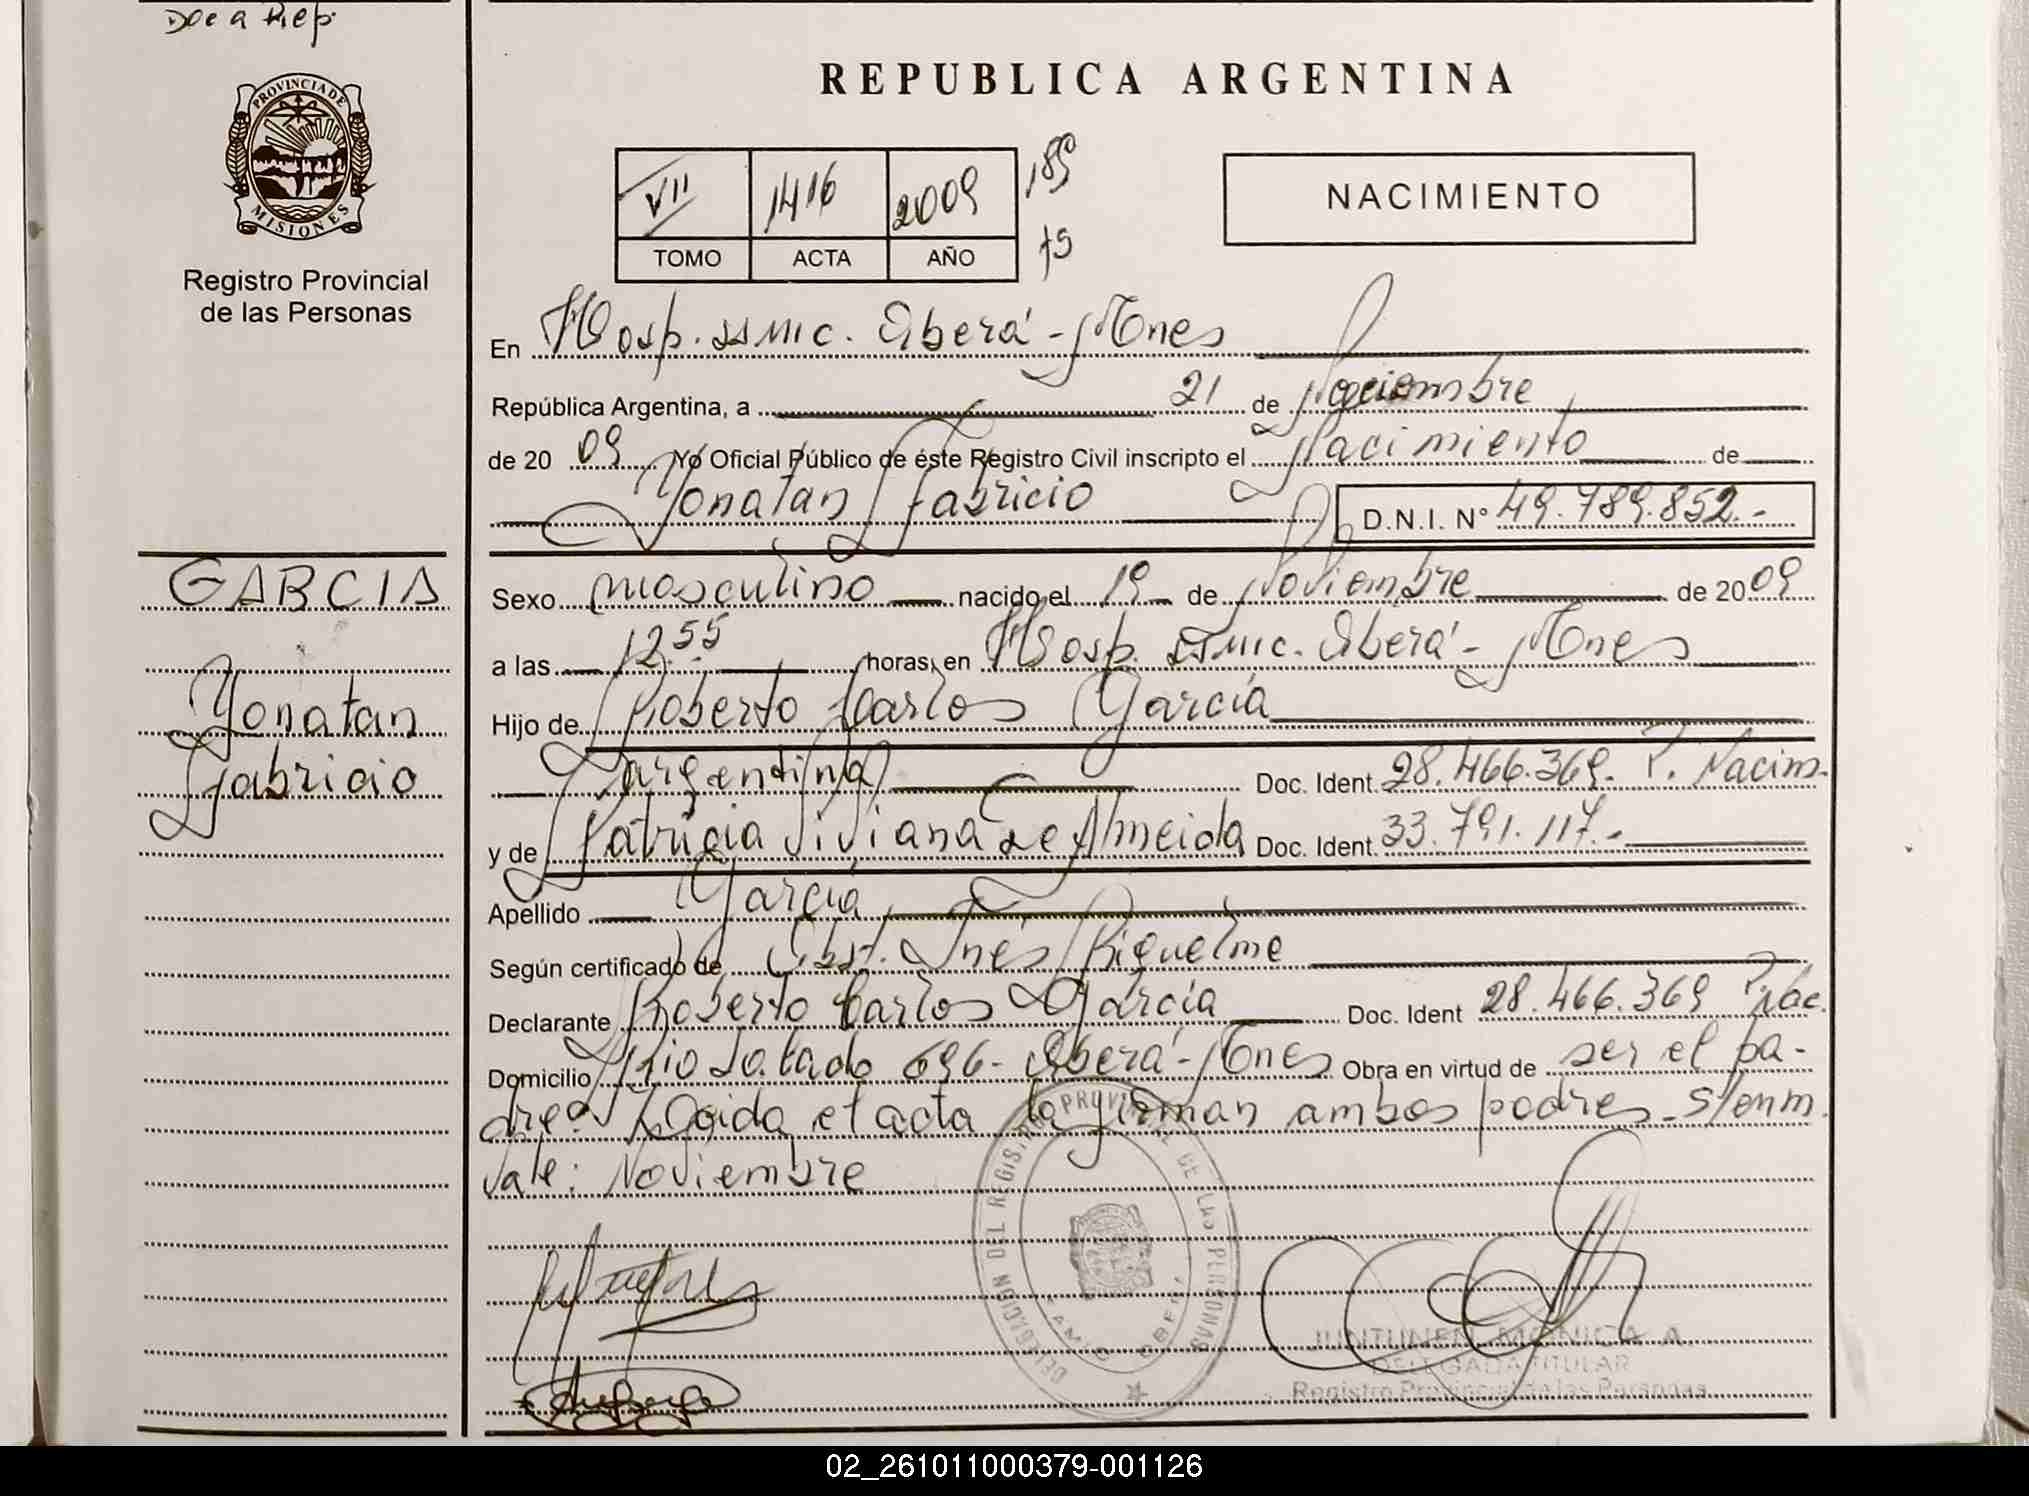 Doc a Rep.
PROVINCIA DE
MISIONES
Registro Provincial
de las Personas
REPUBLICA ARGENTINA
VII 1416 2009 189
TOMO ACTA AÑO 75
NACIMIENTO
En Hosp. SSMIC. Oberá - Mnes
República Argentina, a 21 de Noviembre
de 20 09 Yo Oficial Público de éste Registro Civil inscripto el Nacimiento de
Yonatan Fabricio D.N.I. N° 49.789.852.-
GARCIA
Yonatan
Fabricio
Sexo masculino nacido el 19 de Noviembre de 20 09
a las 12.55 horas, en Hosp. SSMIC. Oberá - Mnes
Hijo de Roberto Carlos García
argentina Doc. Ident. 28.466.369. P. Nacim.
y de Patricia Viviana De Almeida Doc. Ident. 33.791.117.-
Apellido García
Según certificado de Obst. Inés Riquelme
Declarante Roberto Carlos García Doc. Ident 28.466.369 P. Nac.
Domicilio Rio Salado 696 - Oberá - Mnes Obra en virtud de ser el pa-
dre. Leida el acta la firman ambos padres. S/enm.
Vale: Noviembre
DELEGACION DEL REGISTRO PROVINCIAL DE LAS PERSONAS
JUNTUNEN MONICA A.
DELEGADA TITULAR
Registro Provincial de las Personas
02_261011000379-001126